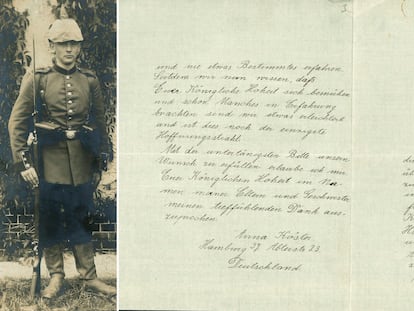 3.
und nie etwas Bestimmtes erfahren.
Seitdem wir nun wissen, daß
Eure Königliche Hoheit sich bemühen
und schon Manches in Erfahrung
brachten sind wir etwas erleichtert
und ist dies noch der einzigste
Hoffnungsstrahl.
Mit der untertänigsten Bitte unsern
Wunsch zu erfüllen erlaube ich mir
Euer Königlichen Hoheit im Na-
men meiner Eltern und Geschwister
meinen tieffühlenden Dank aus-
zusprechen
Anna Köster
Hamburg 37
Deutschland